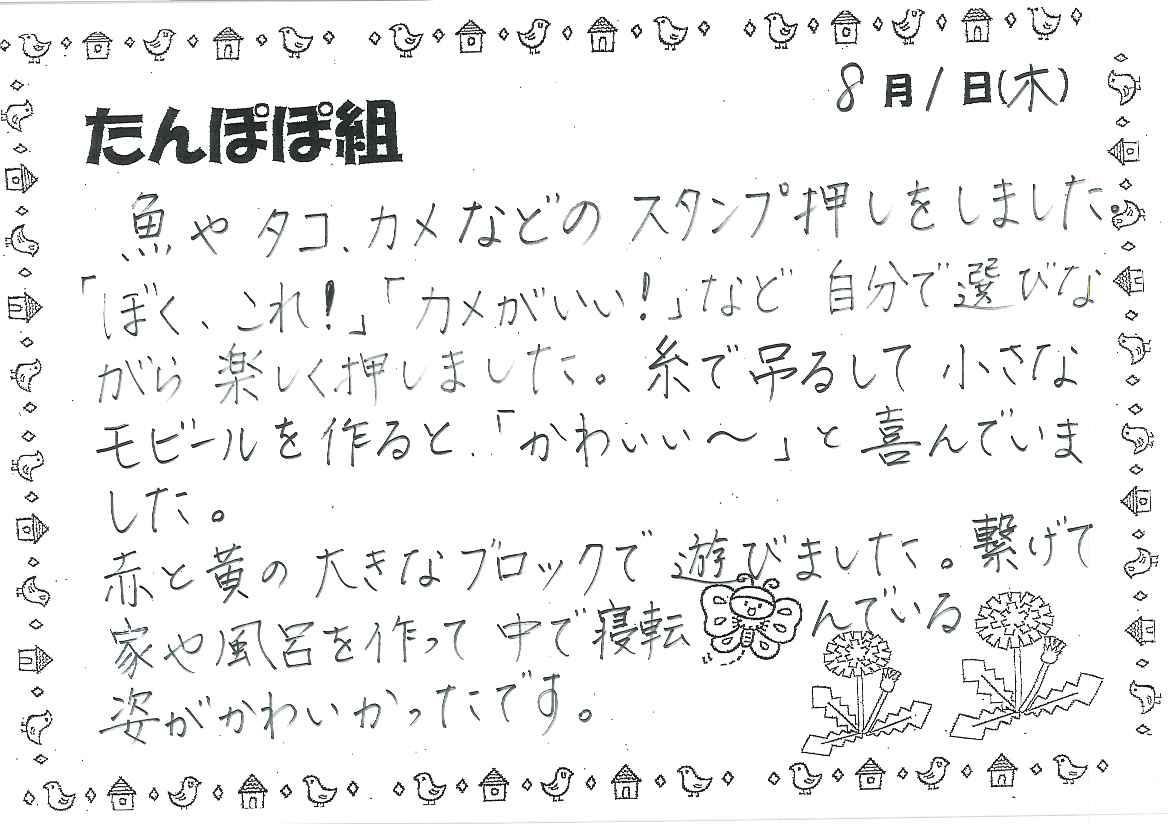 8月1日(木)
たんぽぽ組
魚やタコ、カメなどのスタンプ押しをしました。
「ぼく、これ!」「カメがいい!」など自分で選びな
がら楽しく押しました。糸で吊るして小さな
モビールを作ると、「かわいい〜」と喜んでいま
した。
赤と黄の大きなブロックで遊びました。繋げて
家や風呂を作って中で寝転んでいる
姿がかわいかったです。